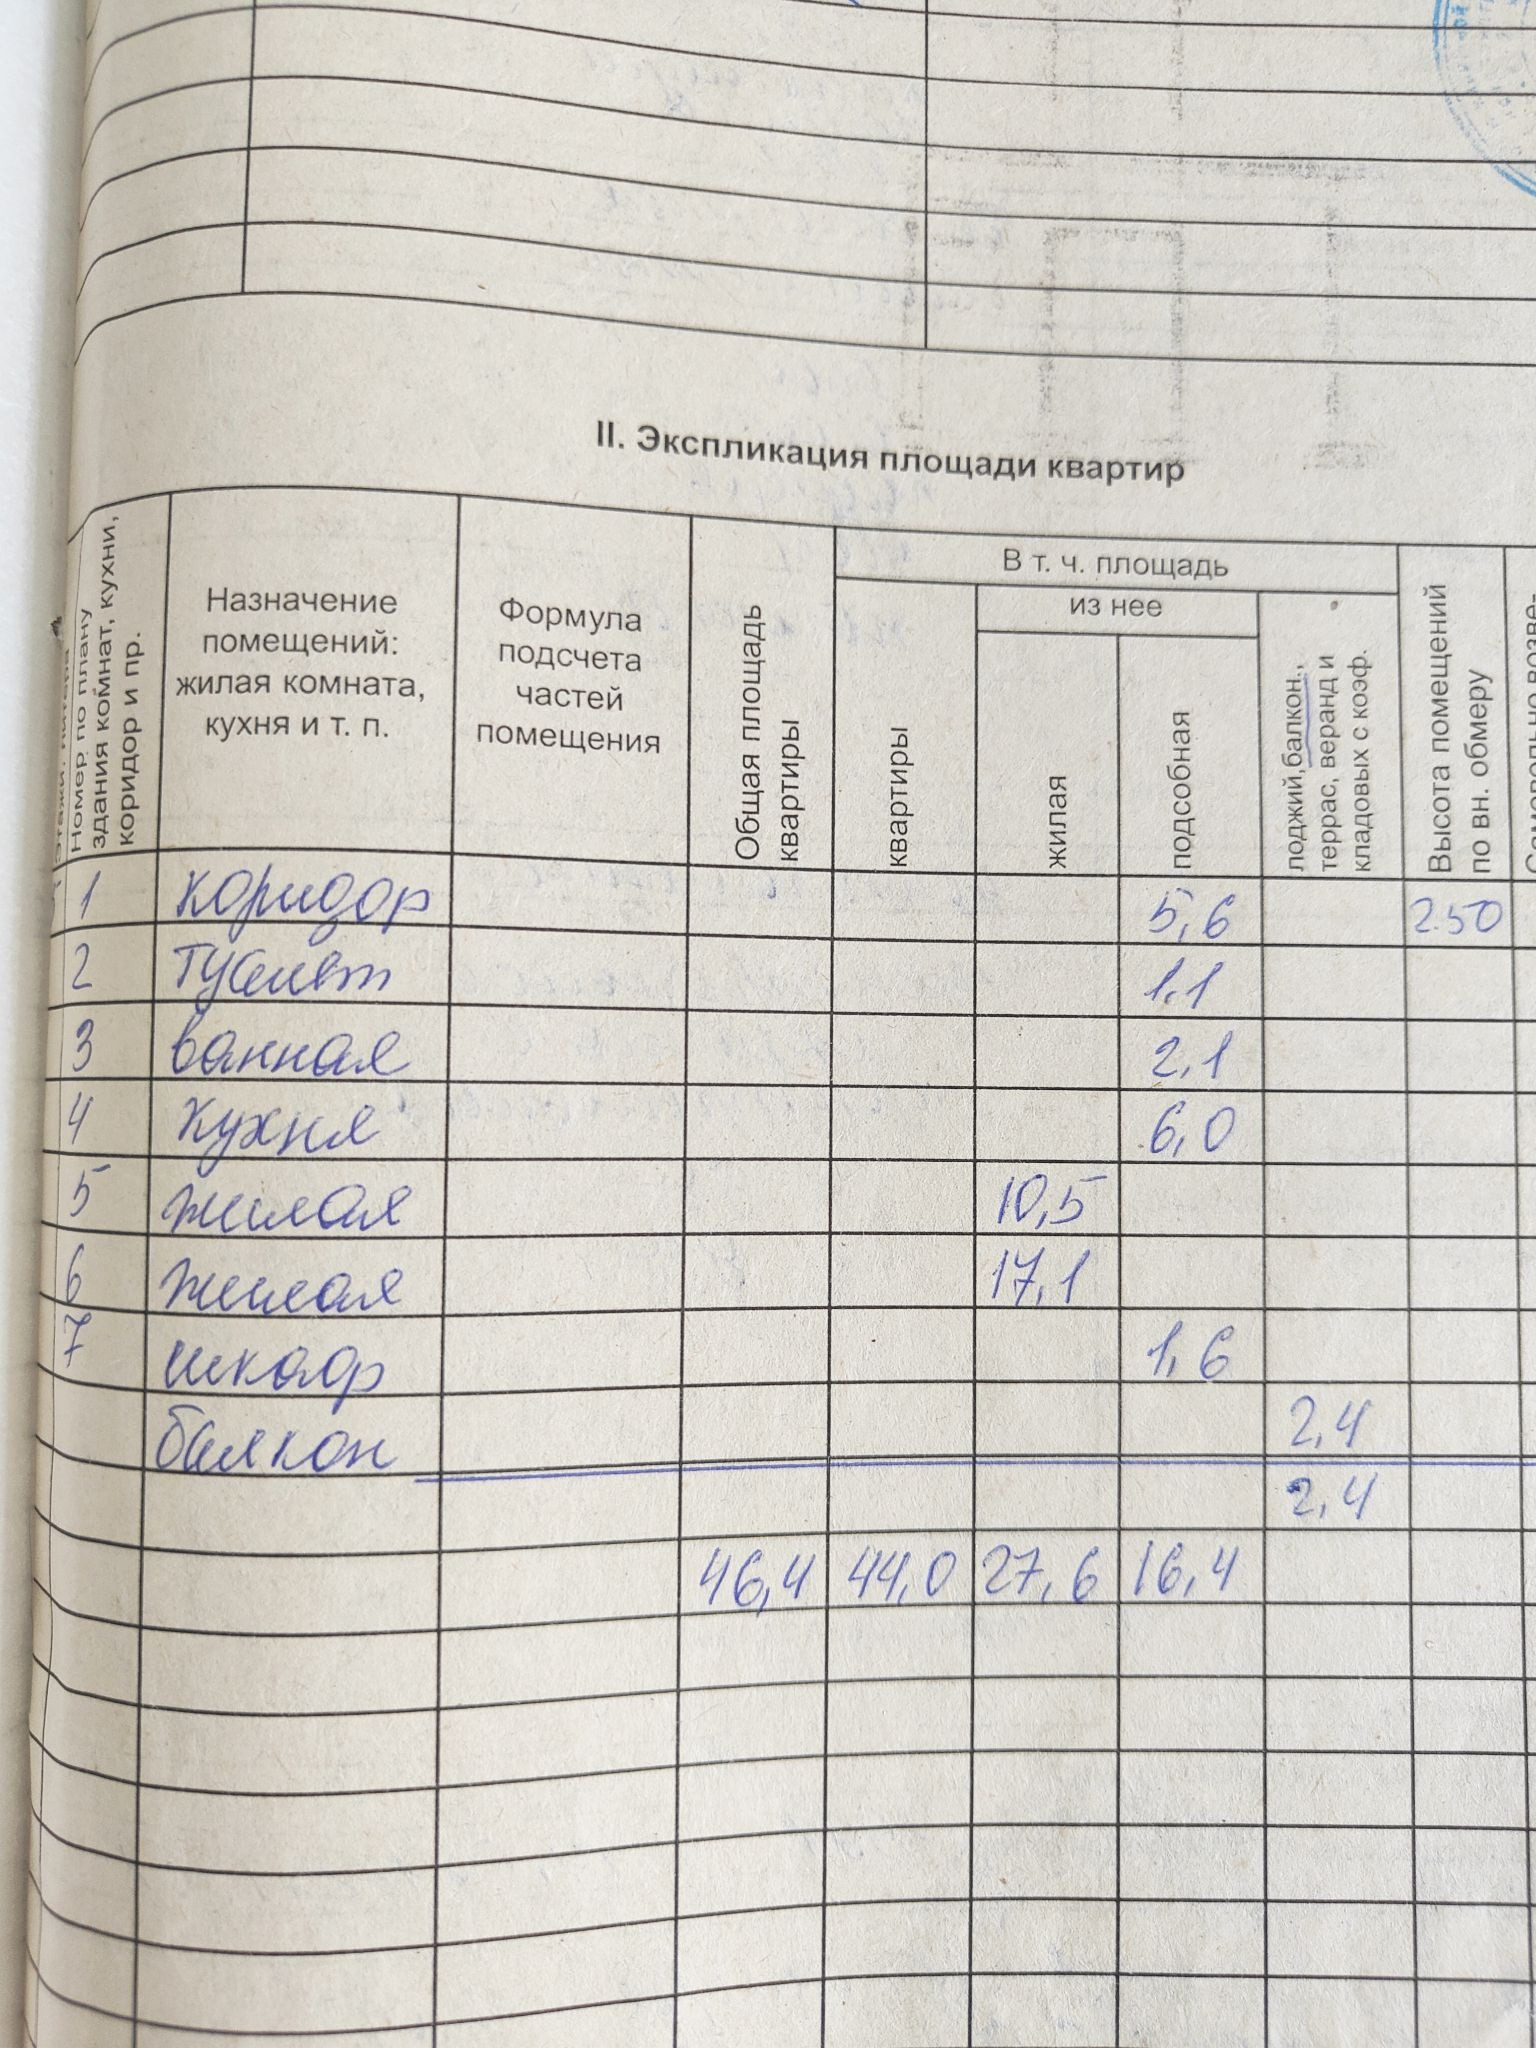 II. Экспликация площади квартир
Номер по плану
здания комнат, кухни,
коридор и пр.
Назначение
помещений:
жилая комната,
кухня и т. п.
Формула
подсчета
частей
помещения
Общая площадь
квартиры
В т. ч. площадь
квартиры
из нее
жилая
подсобная
лоджий, балкон.,
террас, веранд и
кладовых с коэф.
Высота помещений
по вн. обмеру
1 коридор 5,6 2.50
2 туалет 1,1
3 ванная 2,1
4 кухня 6,0
5 жилая 10,5
6 жилая 17,1
7 шкаф 1,6
балкон 2,4
2,4
46,4 44,0 27,6 16,4